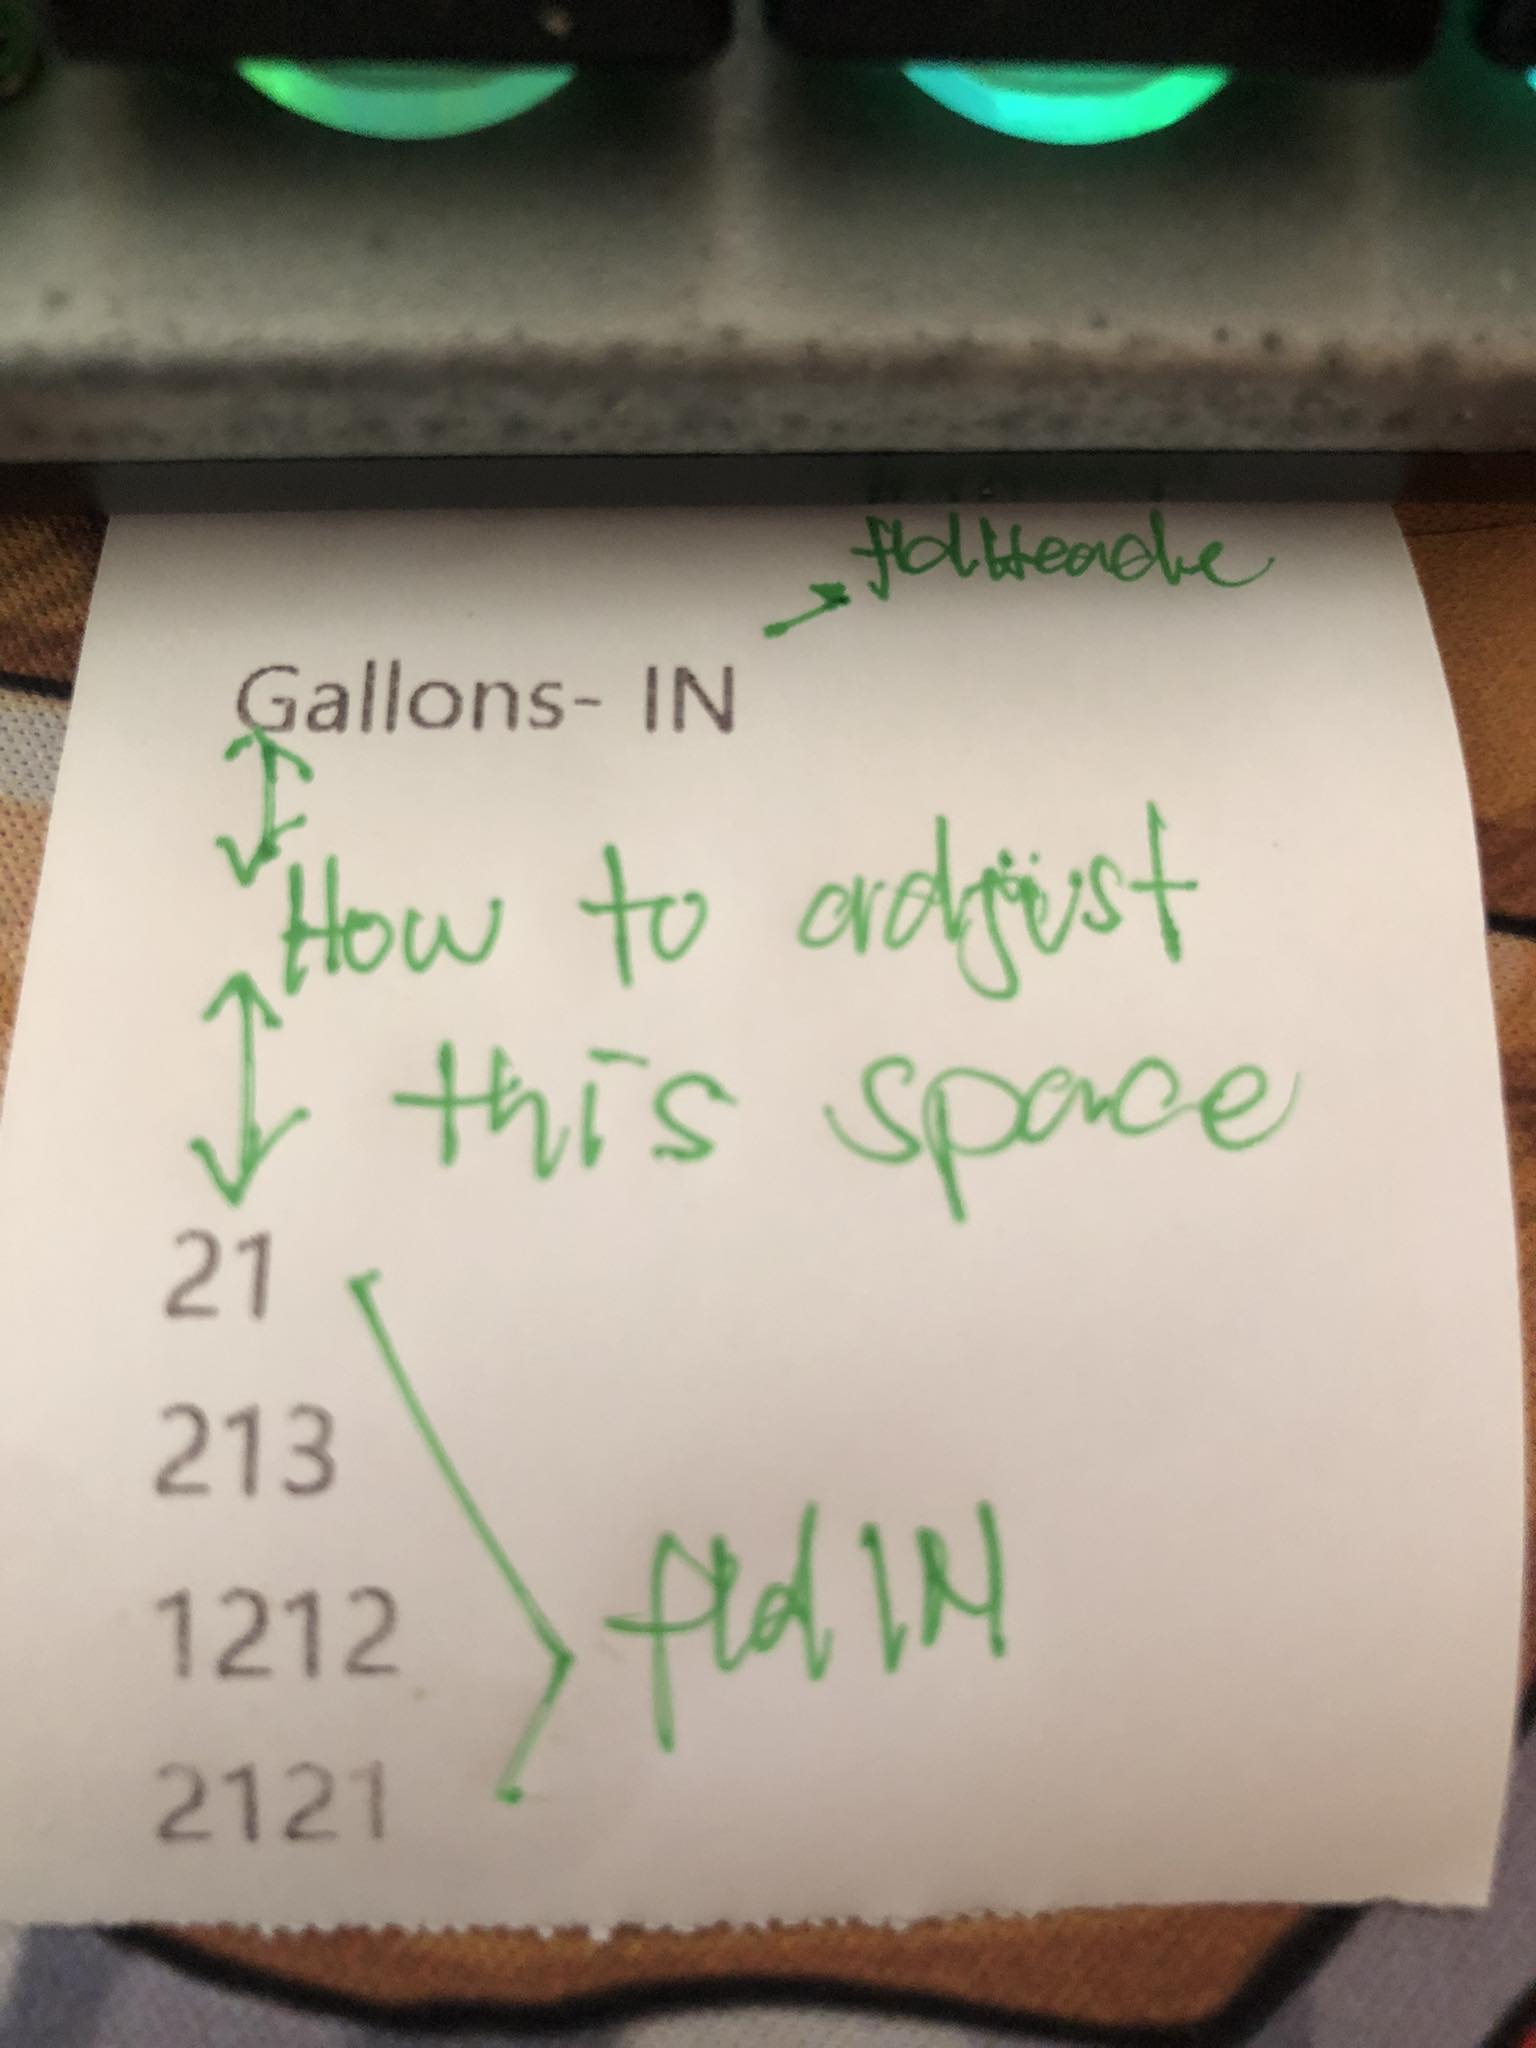 fldHeade
Gallons- IN
How to adjust
this space
21
213
1212
fldIN
2121